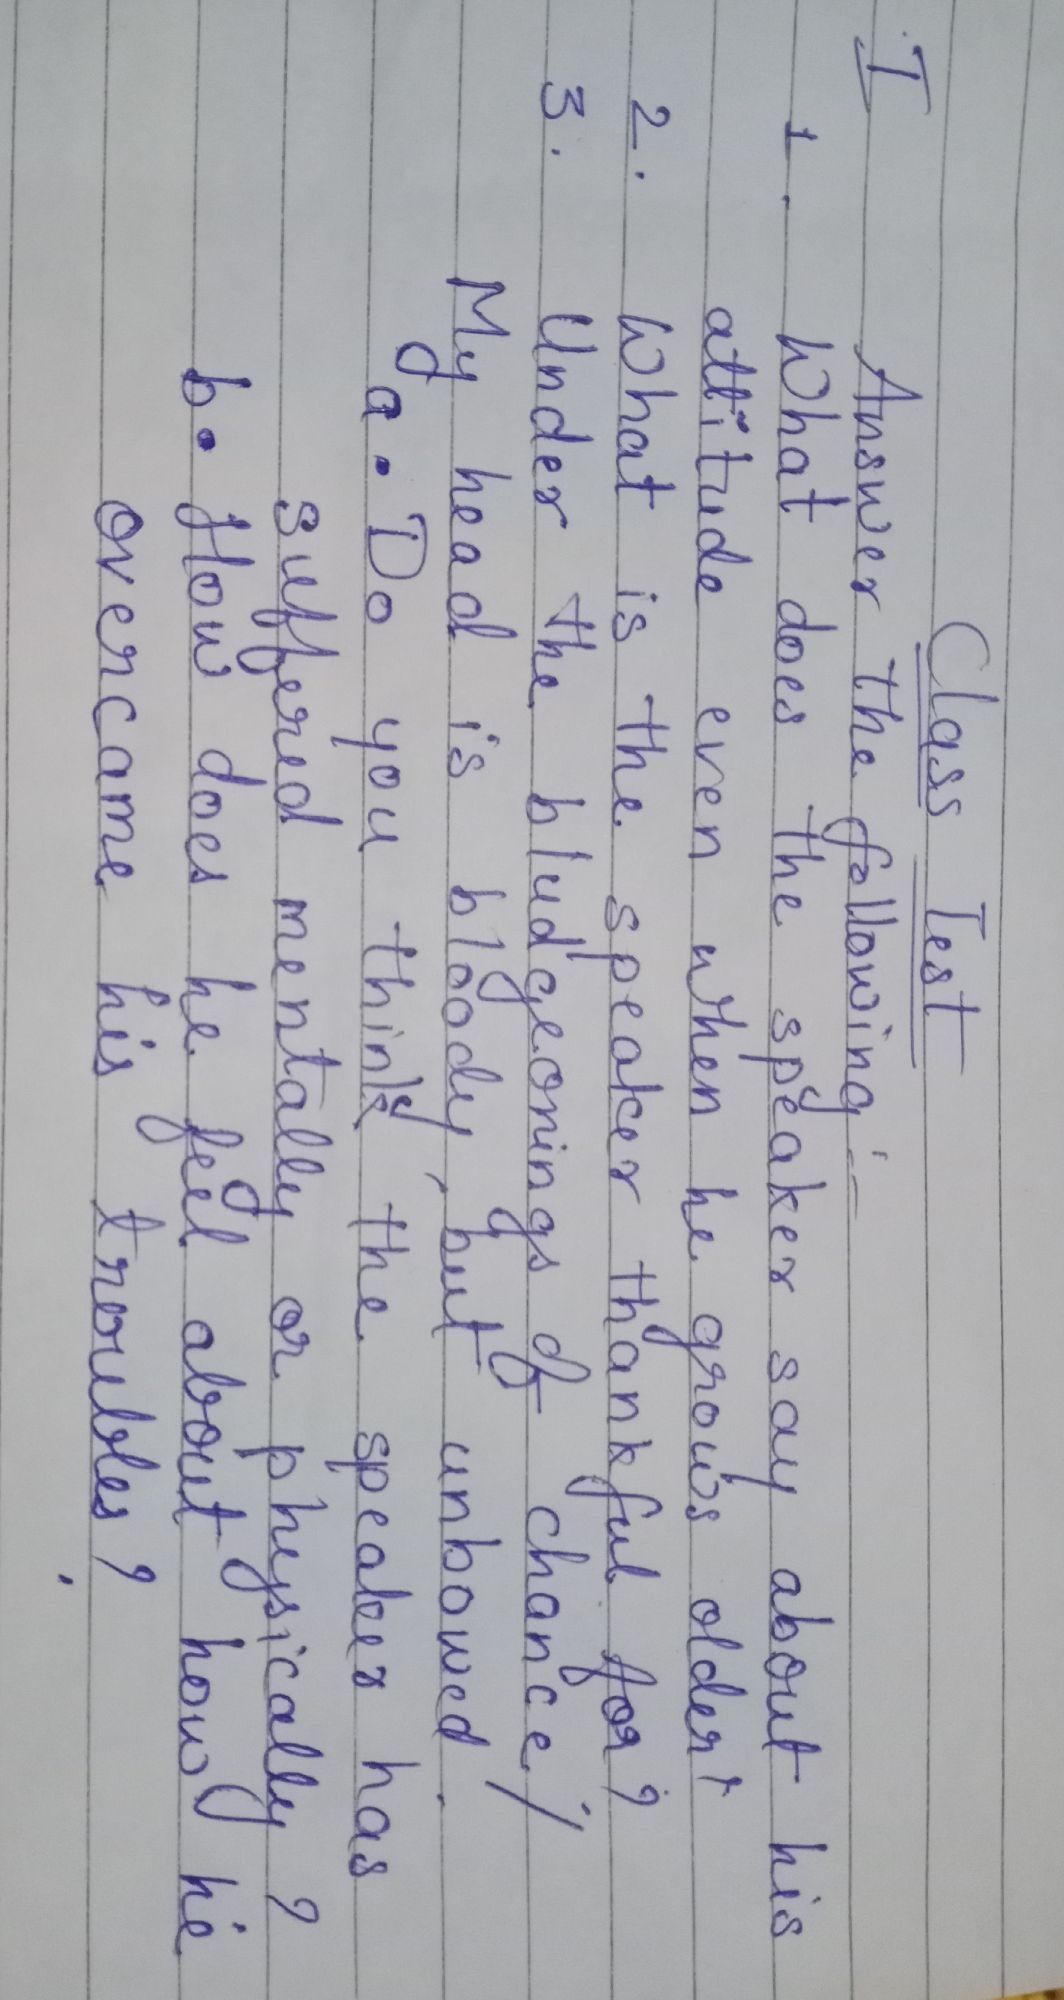 Class Test
I Answer the following :-
1. What does the speaker say about his
attitude even when he grows older?
2. What is the speaker thankful for?
3. Under the bludgeonings of chance /
My head is bloody, but unbowed.
a. Do you think the speaker has
suffered mentally or physically?
b. How does he feel about how he
overcame his troubles?